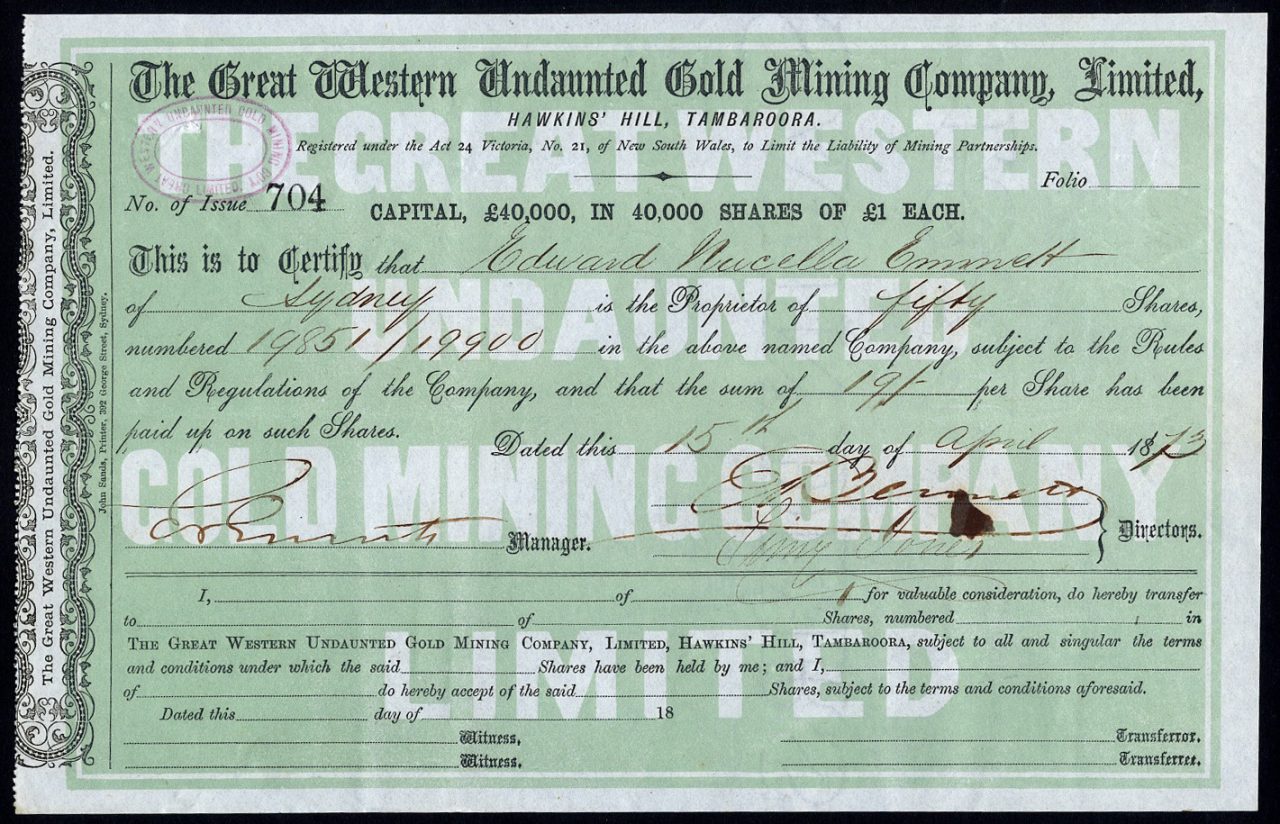 The Great Western Undaunted Gold Mining Company, Limited,
HAWKINS' HILL, TAMBAROORA.
Registered under the Act 24 Victoria, No. 21, of New South Wales, to Limit the Liability of Mining Partnerships.
GREAT WESTERN UNDAUNTED GOLD MINING COY. LIMITED.
Folio
No. of Issue 704
CAPITAL, £40,000, IN 40,000 SHARES OF £1 EACH.
This is to Certify that Edward Nucella Emmett
of Sydney is the Proprietor of fifty Shares,
numbered 19851/19900 in the above named Company, subject to the Rules
and Regulations of the Company, and that the sum of 19/- per Share has been
paid up on such Shares.
Dated this 15th day of April 1873
Manager.
Directors.
I, of for valuable consideration, do hereby transfer
to of Shares, numbered in
THE GREAT WESTERN UNDAUNTED GOLD MINING COMPANY, LIMITED, HAWKINS' HILL, TAMBAROORA, subject to all and singular the terms
and conditions under which the said Shares have been held by me; and I,
of do hereby accept of the said Shares, subject to the terms and conditions aforesaid.
Dated this day of 18
Witness. Transferror.
Witness. Transferree.
THE GREAT WESTERN
UNDAUNTED
GOLD MINING COMPANY
LIMITED
The Great Western Undaunted Gold Mining Company, Limited.
John Sands, Printer, 392 George Street, Sydney.